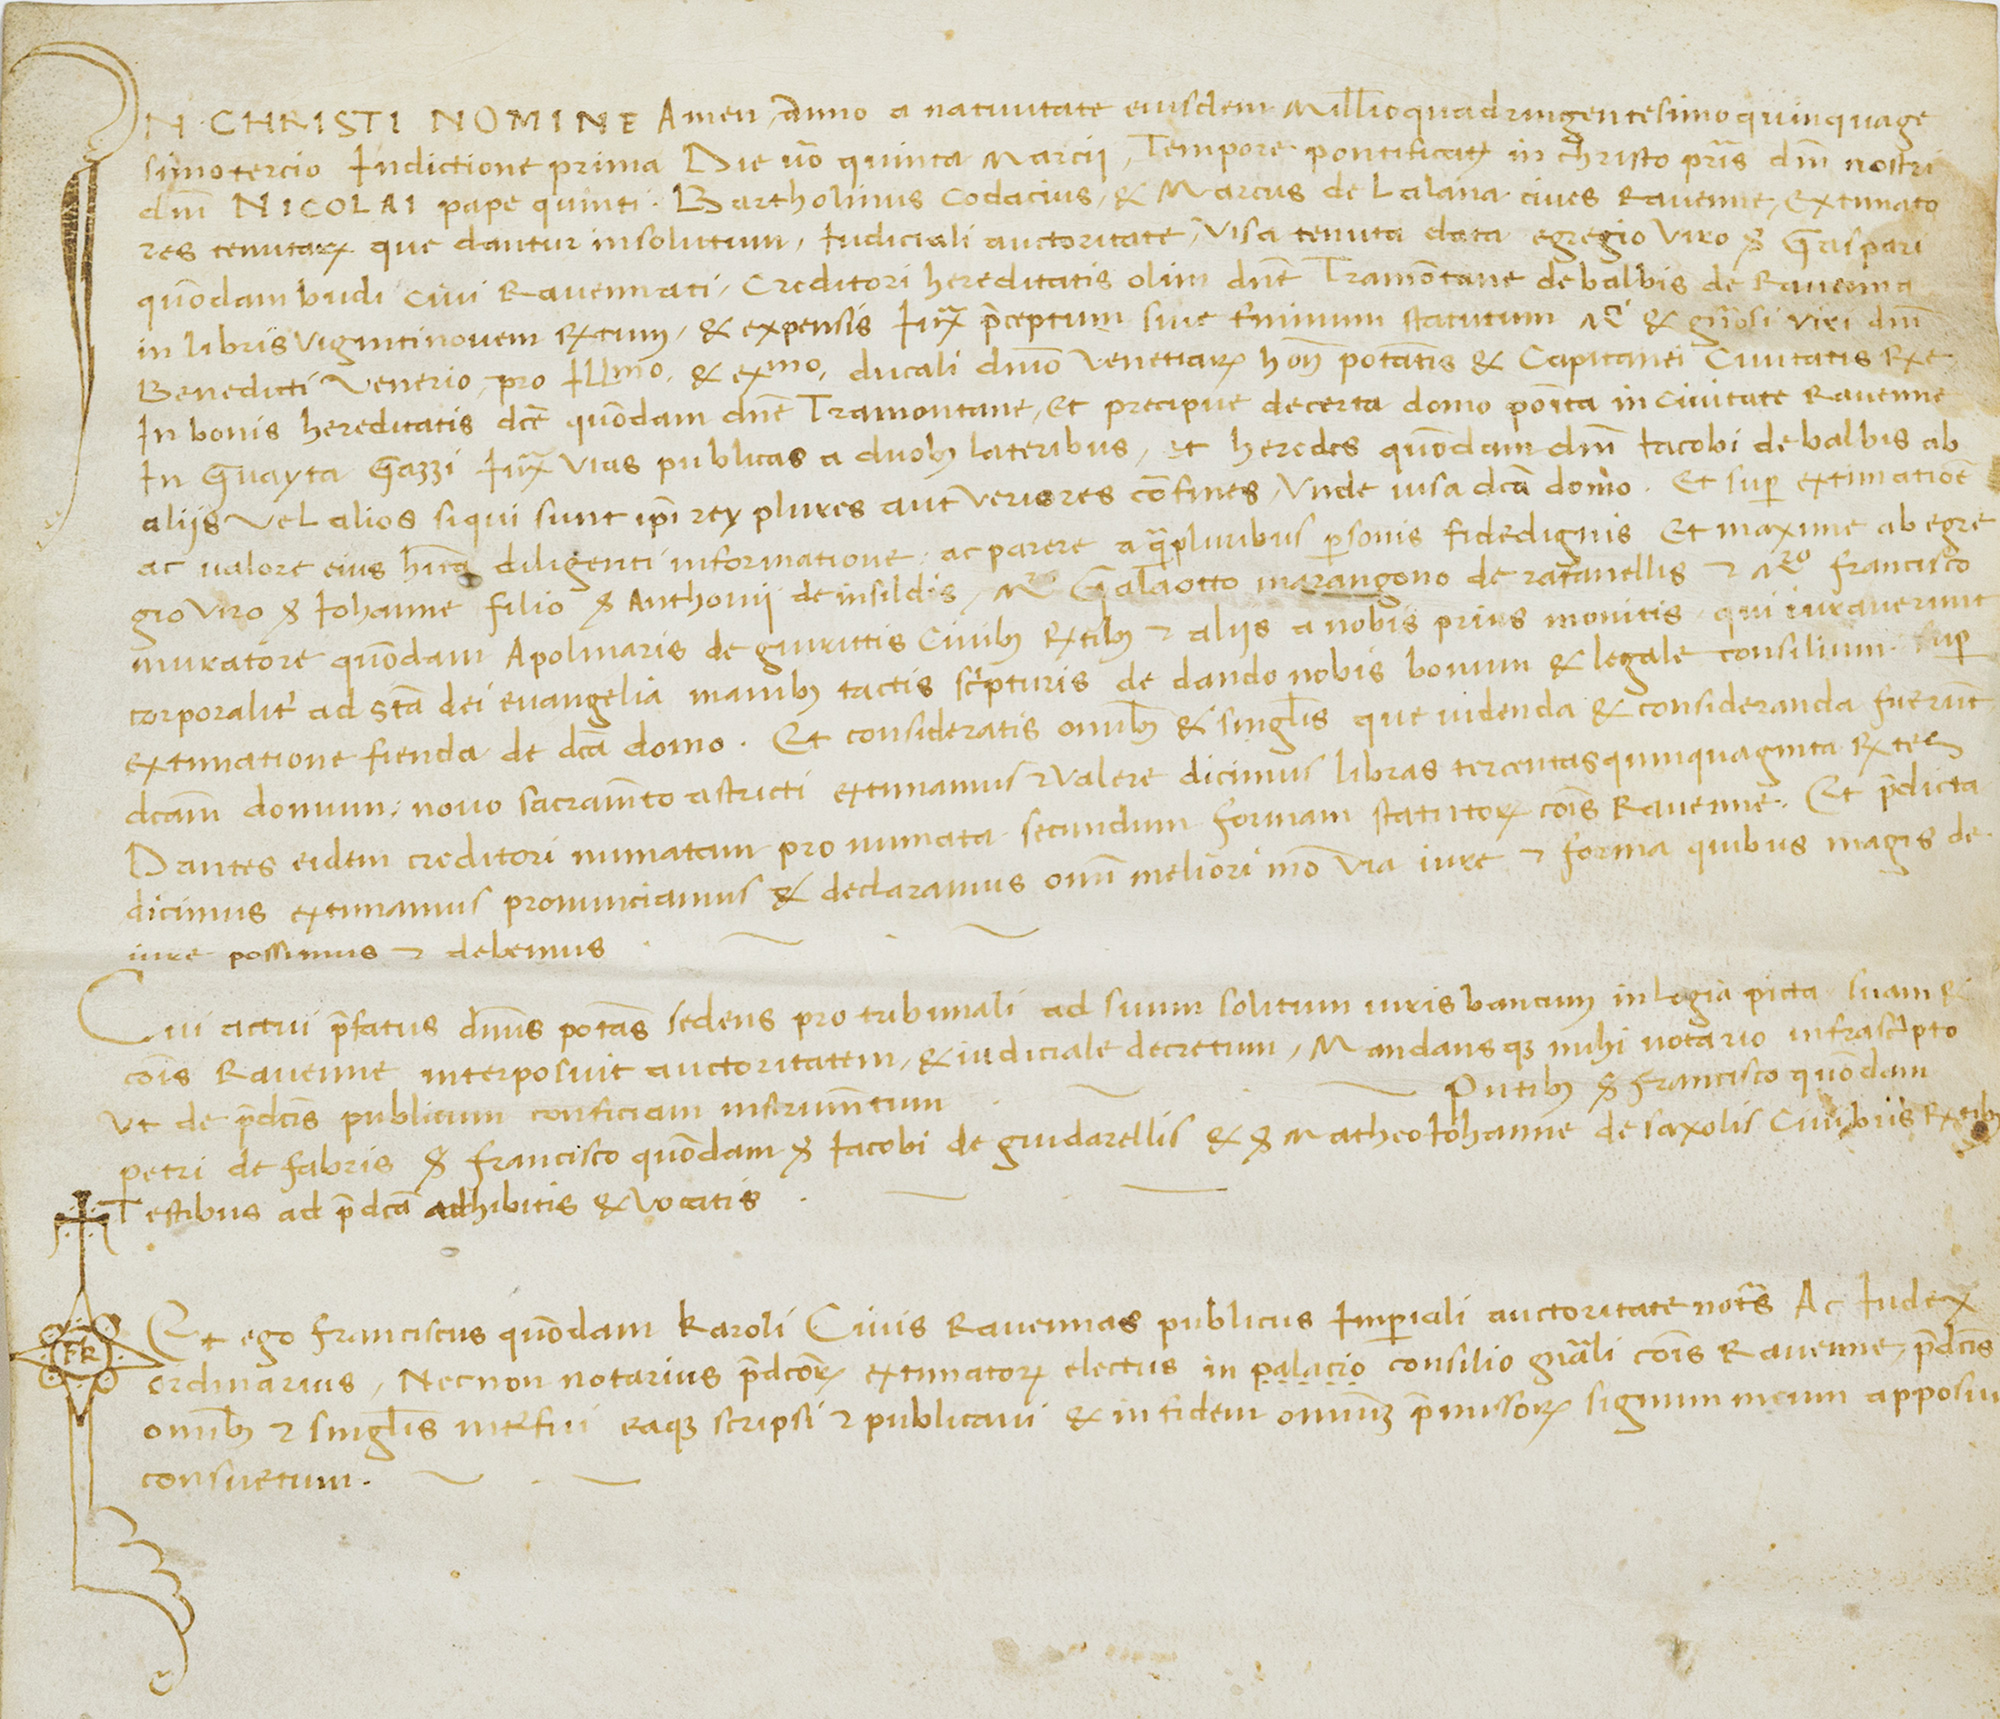 IN CHRISTI NOMINE Amen, Anno a nativitate eiusdem Mill̅ioquadringentesimoquinquage
simotercio Indictione prima Die v̅o quinta Marcij, Tempore pontificatꝰ in christo pr̅is dn̅i nostri
dn̅i NICOLAI pape quinti. Bartholinus Codacius, & Marcus de Lalana cives Ravenne, Extimato
res tenutaꝝ que dantur insolutum, Iudiciali auctoritate, Visa tenuta data egregio Viro S̅ Gaspari
quo̅dam budi Civi Ravennati, Creditori hereditatis olim dn̅e Tramo̅tane debalbis de Ravenna
in libris vigintinovem Rxtum, & expensis Iux̅ p̅ceptum sive t̅minum statutum & gn̅osi viri dn̅i
Benedicti Venerio, pro Ill̅mo. & exmo. ducali dn̅io Venetiaꝝ hon̅ pota̅tis & Capitanei Civitatis Rxe
In bonis hereditatis dc̅e quo̅dam dn̅e Tramontane, Et precipue decerta domo po̅ita in Civitate Ravenne
In Guayta Gazzi Iux̅ vias publicas a duobꝫ lateribus, et heredes quo̅dam dn̅i Iacobi debalbis ab
aliis vel alios siqui sunt ip̅i rei plures aut veriores co̅fines, Unde visa dc̅a domo. Et suꝑ extimatio̅e
ac valore eius h̅ita diligenti informatione, ac parere a q̅ꝑluribus ꝑsonis fidedignis Et maxime ab egre
gio viro S̅ Iohanne filio S̅ Anthonij de insildis, Mr̅ Galaotto marangono de rasanellis ⁊ Mro francisco
muratore quo̅dam Apolinaris de giunttis Civibꝫ Rxtibꝫ ⁊ aliis a nobis prius monitis, qui iuraverunt
corporalit̓ ad sc̅a dei evangelia manibꝫ tactis sc̓ipturis de dando nobis bonum & legale consilium suꝑ
extimatione fienda de dc̅a domo. Et consideratis om̅ibꝫ & singl̅is que videnda & consideranda fueru̅t
dc̅am domum, novo sacram̅to astricti extimamus ⁊ valere dicimus libras tercentasquinquaginta Rxten̅
Dantes eidem creditori numatam pro numata secundum formam statutoꝝ co̅is Ravenne. Et p̅dicta
dicimus extimamus pronunciamus & declaramus omn̅i meliori mo̅ via iure ⁊ forma quibus magis de
iure possimus ⁊ debemus
Cui actui p̅fatus dn̅us pota̅s sedens pro tribunali ad suum solitum iuris bancum in logia picta suam &
co̅is Ravenne interposuit auctoritatem, & iudiciale decretum, Mandansqꝫ mihi notario infrasc̓ipto
Ut de p̅dc̅is publicum conficiam instrum̅tum Pn̅tibꝫ S̅ Francisco quo̅dam
petri de fabris S̅ Francisco quo̅dam S̅ Iacobi de guidarellis & S̅ Matheo Iohanne de saxolis Civibus Rxtibꝫ
Testibus ad p̅dc̅a adhibitis & vocatis
FR
Et ego Franciscus quo̅dam Karoli Civis Ravennas publicus Imꝑiali auctoritate not̅s Ac Iudex
ordinarius, Necnon notarius p̅dc̅oꝝ extimatoꝝ electus in palacio consilio gn̅ali co̅is Ravenne, p̅dc̅is
om̅ibꝫ ⁊ singl̅is int̅fui eaqꝫ scripsi ⁊ publicavi & in fidem omniu̅ p̅missoꝝ signum meum apposui
consuetum.